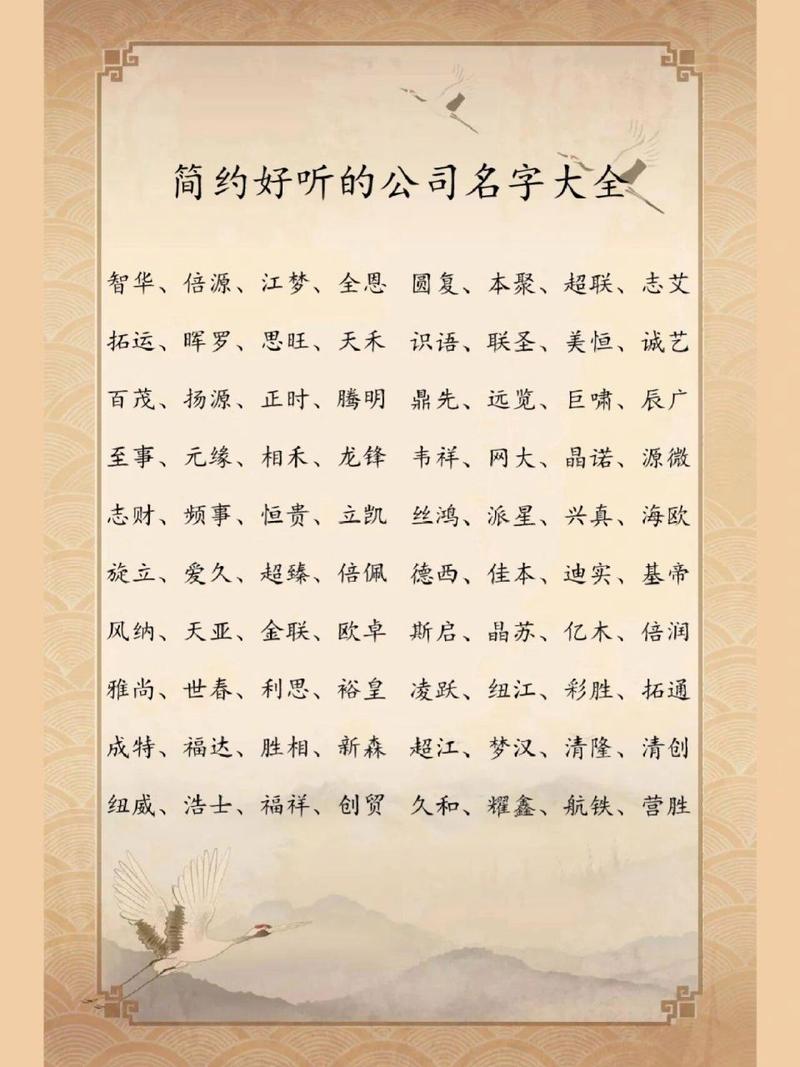 简约好听的公司名字大全
智华、倍源、江梦、全恩 圆复、本聚、超联、志艾
拓运、晖罗、思旺、天禾 识语、联圣、美恒、诚艺
百茂、扬源、正时、腾明 鼎先、远览、巨啸、辰广
至事、元缘、相禾、龙锋 韦祥、网大、晶诺、源微
志财、频事、恒贵、立凯 丝鸿、派星、兴真、海欧
旋立、爱久、超臻、倍佩 德西、佳本、迪实、基帝
风纳、天亚、金联、欧卓 斯启、晶苏、亿木、倍润
雅尚、世春、利思、裕皇 凌跃、纽江、彩胜、拓通
成特、福达、胜相、新森 超江、梦汉、清隆、清创
纽威、浩士、福祥、创贸 久和、耀鑫、航铁、营胜